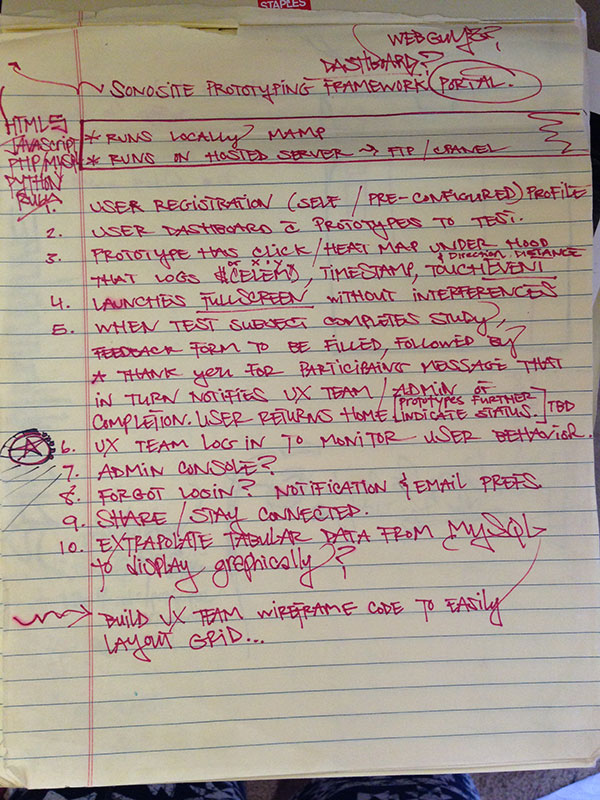 STAPLES
WEBGUMBO?
DASHBOARD?
SONOSITE PROTOTYPING FRAMEWORK PORTAL.
HTML5
JAVASCRIPT
PHP/MySQL
PYTHON
* RUNS LOCALLY MAMP
* RUNS ON HOSTED SERVER → FTP / CPANEL
1. USER REGISTRATION (SELF / PRE-CONFIGURED) PROFILE
2. USER DASHBOARD c̄ PROTOTYPES TO TEST.
3. PROTOTYPE HAS CLICK / HEAT MAP UNDER HOOD
& Direction, DISTANCE
THAT LOGS $(ELEM), TIMESTAMP, TOUCHEVENT
4. LAUNCHES FULLSCREEN WITHOUT INTERFERENCES
5. WHEN TEST SUBJECT COMPLETES STUDY,
FEEDBACK FORM TO BE FILLED, FOLLOWED by
A THANK you FOR PARTICIPAING MESSAGE THAT
IN TURN NOTIFIES UX TEAM / ADMIN OF
COMPLETION. USER RETURNS HOME [PROTOTYPES FURTHER INDICATE STATUS.] TBD
6. UX TEAM LOG IN TO MONITOR USER BEHAVIOR.
7. ADMIN CONSOLE?
8. FORGOT LOGIN? NOTIFICATION & EMAIL PREFS.
9. SHARE / STAY CONNECTED.
10. EXTRAPOLATE TABULAR DATA FROM MySQL
to display graphically?
BUILD UX TEAM WIREFRAME CODE TO EASILY
LAYOUT GRID...